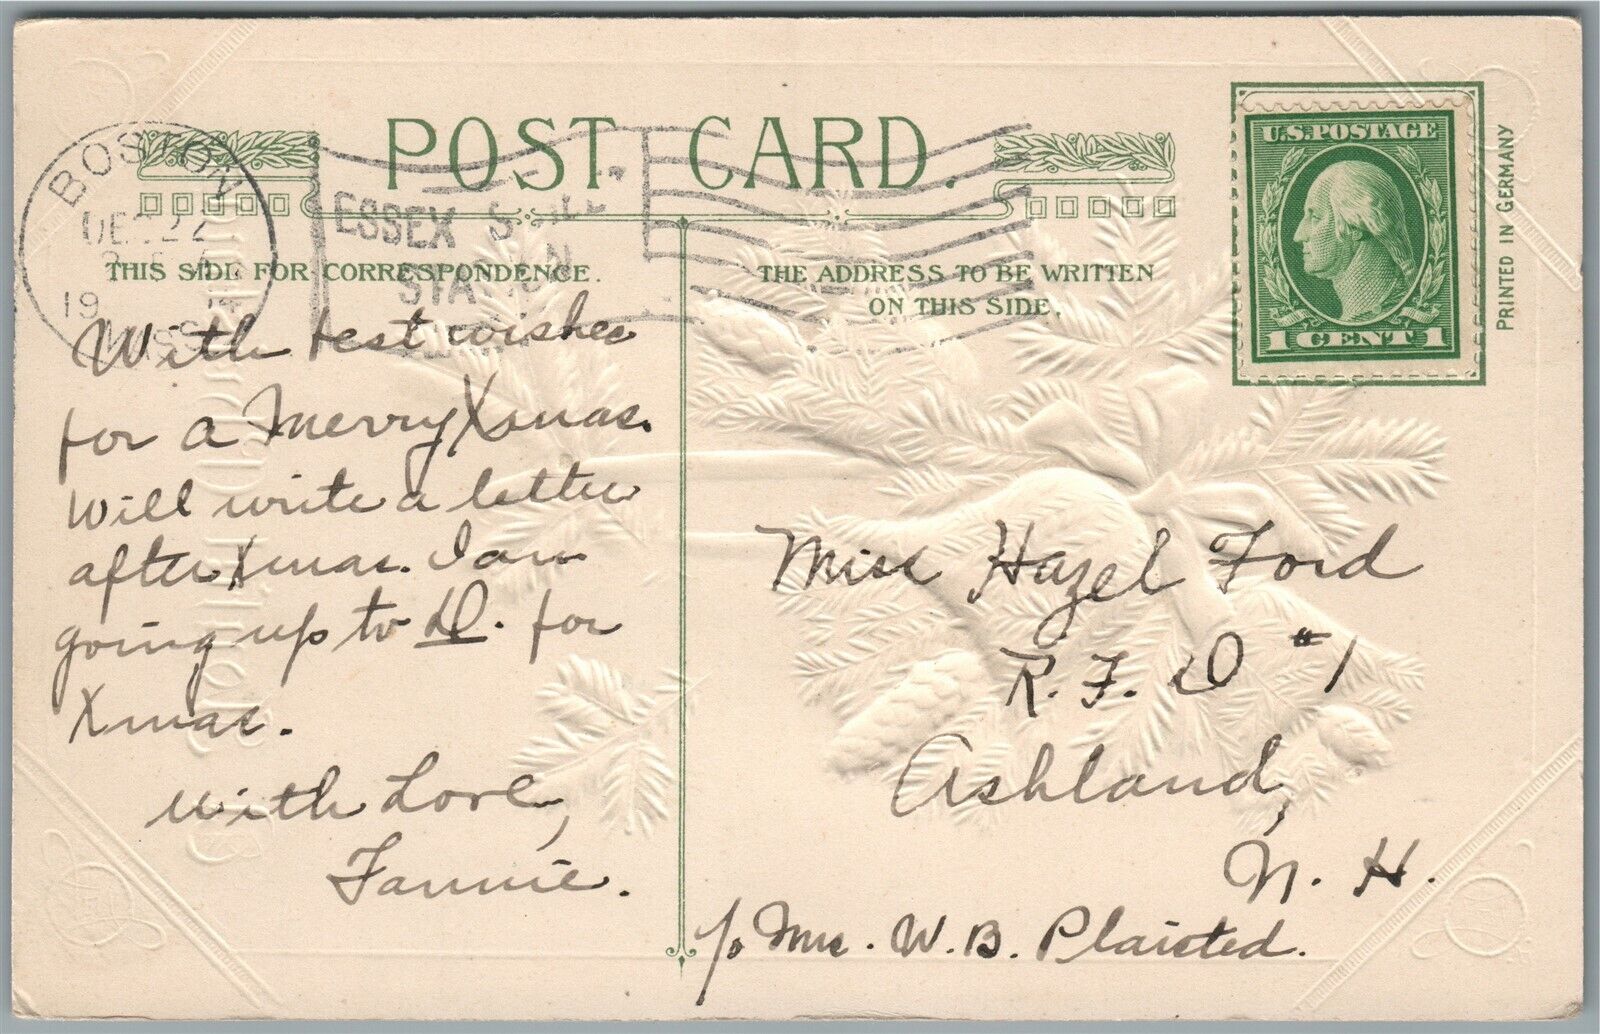 POST CARD.
BOSTON
DEC 22
19
MASS
ESSEX
STATION
THIS SIDE FOR CORRESPONDENCE.
THE ADDRESS TO BE WRITTEN
ON THIS SIDE.
U.S. POSTAGE
1 CENT 1
PRINTED IN GERMANY
With best wishes
for a Merry Xmas.
Will write a letter
after Xmas. I am
going up to D. for
Xmas.
With Love,
Fannie.
Miss Hazel Ford
R. F. D #1
Ashland,
N. H.
c/o Mrs. W. B. Plaisted.